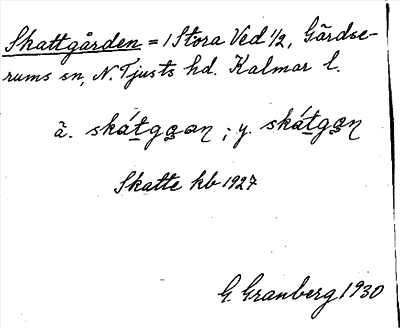 Skattgården = 1 Stora Ved 1/2, Gärdse-
rums sn, N. Tjusts hd. Kalmar l.
ä. skátgɑɑn ; y. skátgɑn
Skatte kb 1927
G. Granberg 1930